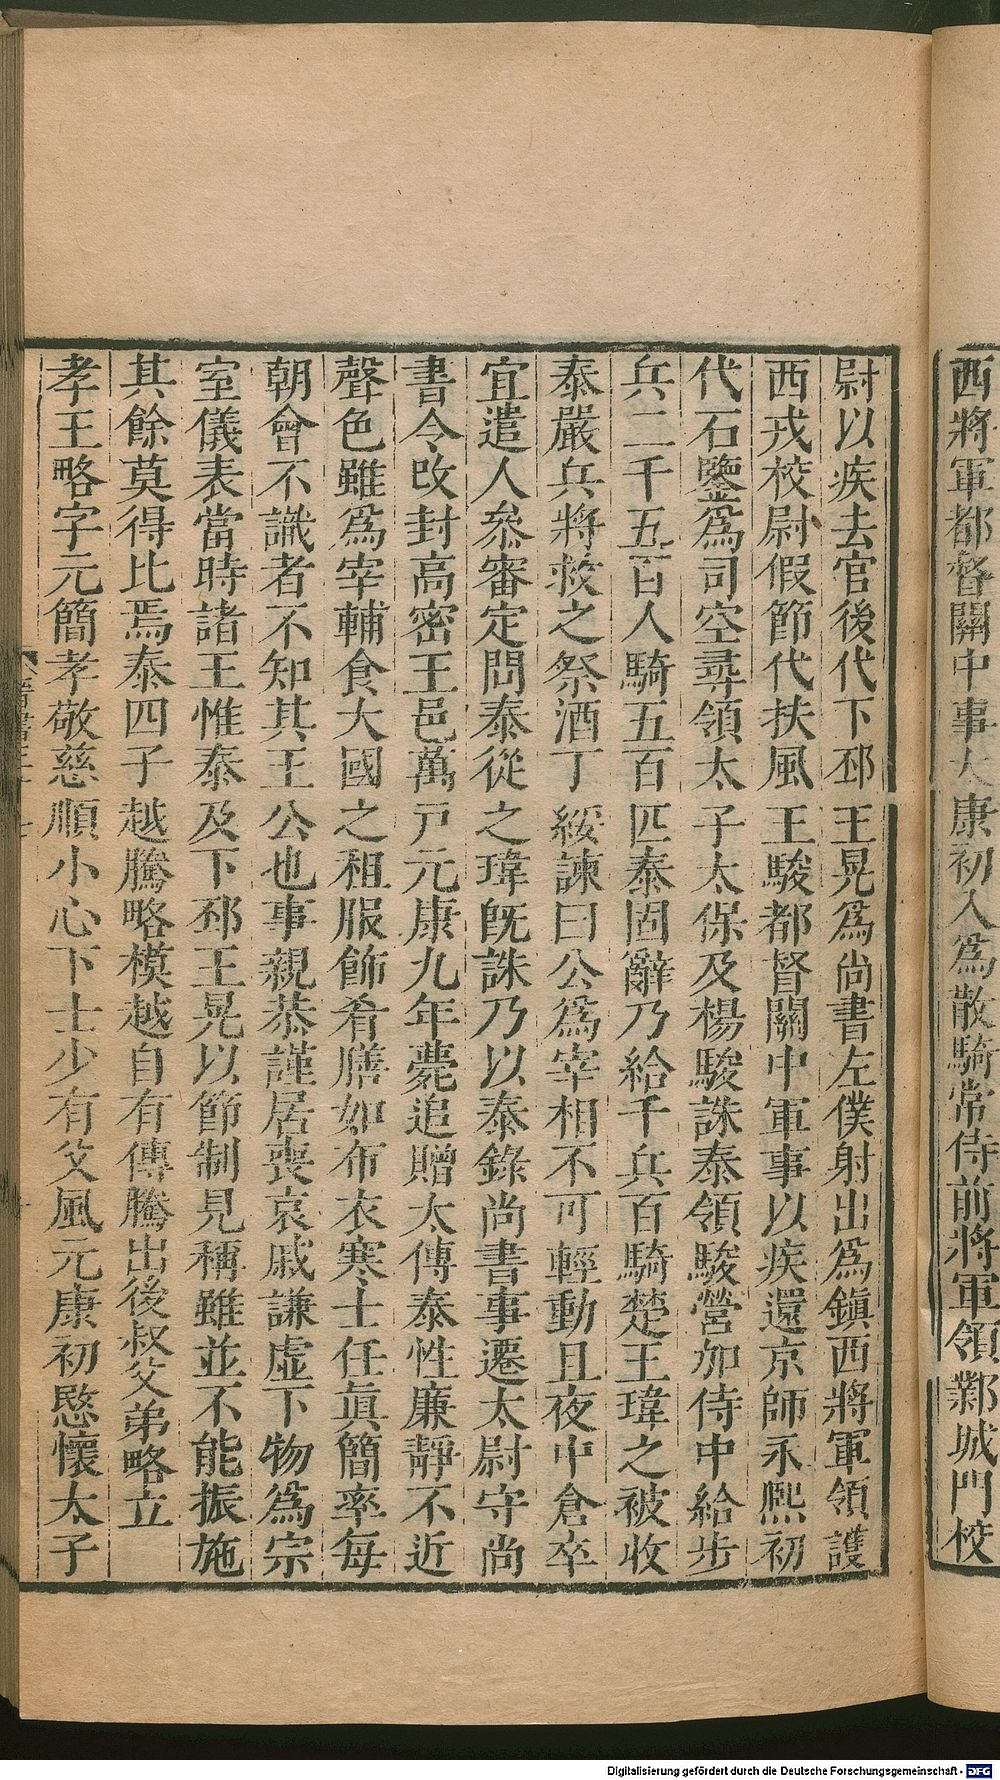 西將軍都督關中事太康初入爲散騎常侍前將軍領鄴城門校
尉以疾去官後代下邳王晃爲尚書左僕射出爲鎭西將軍領護
西戎校尉假節代扶風王駿都督關中軍事以疾還京師永熙初
代石鑒爲司空尋領太子太保及楊駿誅泰領駿營加侍中給步
兵二千五百人騎五百匹泰固辭乃給千兵百騎楚王瑋之被收
泰嚴兵將救之祭酒丁綏諫曰公爲宰相不可輕動且夜中倉卒
宜遣人叅審定問泰從之瑋旣誅乃以泰錄尚書事遷太尉守尚
書令改封高密王邑萬戸元康九年薨追贈太傅泰性廉靜不近
聲色雖爲宰輔食大國之租服飾肴膳如布衣寒士任眞簡率每
朝會不識者不知其王公也事親恭謹居喪哀戚謙虚下物爲宗
室儀表當時諸王惟泰及下邳王晃以節制見稱雖並不能振施
其餘莫得比焉泰四子越騰略模越自有傳騰出後叔父弟略立
孝王略字元簡孝敬慈順小心下士少有父風元康初愍懷太子
Digitalisierung gefördert durch die Deutsche Forschungsgemeinschaft - DFG